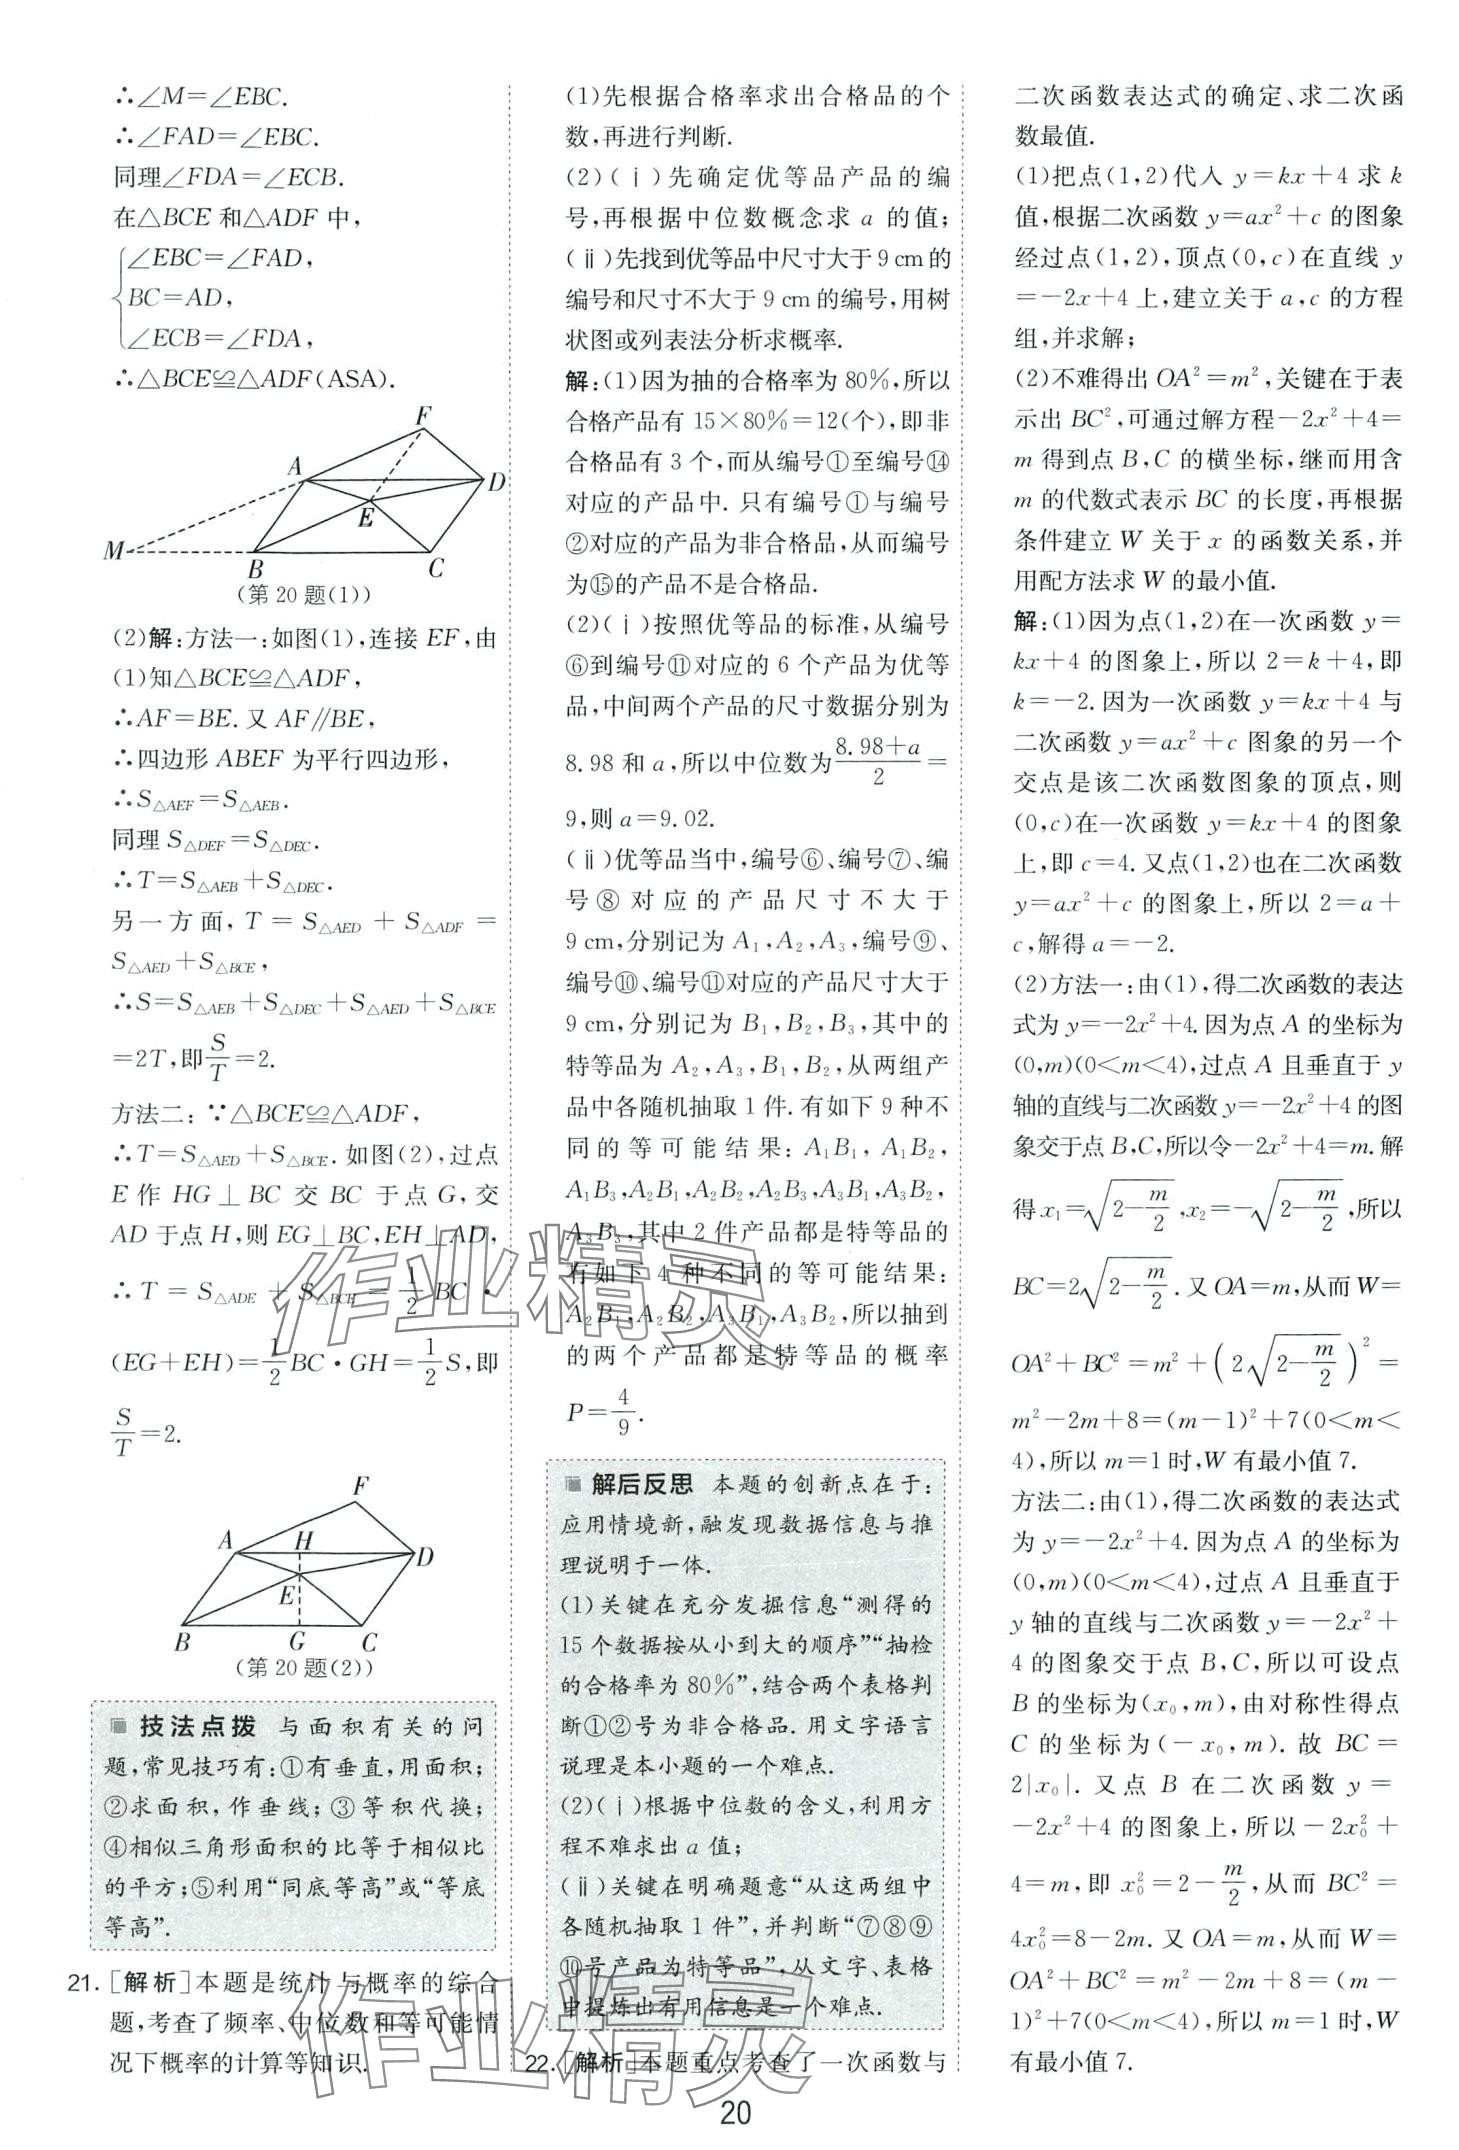 ∴∠M=∠EBC.
∴∠FAD=∠EBC.
同理∠FDA=∠ECB.
在△BCE 和△ADF 中,
∠EBC=∠FAD,
BC=AD,
∠ECB=∠FDA,
∴△BCE≌△ADF(ASA).
F
A
D
E
M
B
C
(第 20 题(1))
(2)解:方法一:如图(1),连接 EF,由
(1)知△BCE≌△ADF,
∴AF=BE. 又 AF∥BE,
∴四边形 ABEF 为平行四边形,
∴S△AEF=S△AEB.
同理 S△DEF=S△DEC.
∴T=S△AEB+S△DEC.
另一方面, T = S△AED + S△ADF =
S△AED+S△BCE,
∴S=S△AEB+S△DEC+S△AED+S△BCE
=2T,即S/T=2.
方法二: ∵△BCE≌△ADF,
∴T=S△AED+S△BCE. 如图(2),过点
E 作 HG⊥BC 交 BC 于点 G, 交
AD 于点 H,则 EG⊥BC,EH⊥AD,
∴ T = S△ADE + S△BCE = 1/2 BC ·
(EG+EH)=1/2BC·GH=1/2S,即
S/T=2.
F
A
H
D
E
B
G
C
(第 20 题(2))
技法点拨 与面积有关的问
题,常见技巧有:①有垂直,用面积;
②求面积,作垂线;③等积代换;
④相似三角形面积的比等于相似比
的平方;⑤利用“同底等高”或“等底
等高”.
21. [解析]本题是统计与概率的综合
题,考查了频率、中位数和等可能情
况下概率的计算等知识.
(1)先根据合格率求出合格品的个
数,再进行判断.
(2)(ⅰ)先确定优等品产品的编
号,再根据中位数概念求 a 的值;
(ⅱ)先找到优等品中尺寸大于 9 cm 的
编号和尺寸不大于 9 cm 的编号,用树
状图或列表法分析求概率.
解:(1)因为抽的合格率为 80%,所以
合格产品有 15×80%=12(个),即非
合格品有 3 个,而从编号①至编号⑭
对应的产品中. 只有编号①与编号
②对应的产品为非合格品,从而编号
为⑮的产品不是合格品.
(2)(ⅰ)按照优等品的标准,从编号
⑥到编号⑪对应的 6 个产品为优等
品,中间两个产品的尺寸数据分别为
8.98 和 a,所以中位数为(8.98+a)/2=
9,则 a=9.02.
(ⅱ)优等品当中,编号⑥、编号⑦、编
号⑧对应的产品尺寸不大于
9 cm,分别记为 A₁,A₂,A₃,编号⑨、
编号⑩、编号⑪对应的产品尺寸大于
9 cm,分别记为 B₁,B₂,B₃,其中的
特等品为 A₂,A₃,B₁,B₂,从两组产
品中各随机抽取 1 件. 有如下 9 种不
同的等可能结果: A₁B₁, A₁B₂,
A₁B₃,A₂B₁,A₂B₂,A₂B₃,A₃B₁,A₃B₂,
A₃B₃,其中 2 件产品都是特等品的
有如下 4 种不同的等可能结果:
A₂B₁,A₂B₂,A₃B₁,A₃B₂,所以抽到
的两个产品都是特等品的概率
P=4/9.
解后反思 本题的创新点在于:
应用情境新,融发现数据信息与推
理说明于一体.
(1)关键在充分发掘信息“测得的
15 个数据按从小到大的顺序”“抽检
的合格率为 80%”,结合两个表格判
断①②号为非合格品. 用文字语言
说理是本小题的一个难点.
(2)(ⅰ)根据中位数的含义,利用方
程不难求出 a 值;
(ⅱ)关键在明确题意“从这两组中
各随机抽取 1 件”,并判断“⑦⑧⑨
⑩号产品为特等品”,从文字、表格
中提炼出有用信息是一个难点.
22. [解析]本题重点考查了一次函数与
二次函数表达式的确定、求二次函
数最值.
(1)把点(1,2)代入 y=kx+4 求 k
值,根据二次函数 y=ax²+c 的图象
经过点(1,2),顶点(0,c)在直线 y
=-2x+4 上,建立关于 a,c 的方程
组,并求解;
(2)不难得出 OA²=m²,关键在于表
示出 BC²,可通过解方程-2x²+4=
m 得到点 B,C 的横坐标,继而用含
m 的代数式表示 BC 的长度,再根据
条件建立 W 关于 x 的函数关系,并
用配方法求 W 的最小值.
解:(1)因为点(1,2)在一次函数 y=
kx+4 的图象上,所以 2=k+4,即
k=-2. 因为一次函数 y=kx+4 与
二次函数 y=ax²+c 图象的另一个
交点是该二次函数图象的顶点,则
(0,c)在一次函数 y=kx+4 的图象
上,即 c=4. 又点(1,2)也在二次函数
y=ax²+c 的图象上,所以 2=a+
c,解得 a=-2.
(2)方法一:由(1),得二次函数的表达
式为 y=-2x²+4. 因为点 A 的坐标为
(0,m)(0<m<4),过点 A 且垂直于 y
轴的直线与二次函数 y=-2x²+4 的图
象交于点 B,C,所以令-2x²+4=m. 解
得 x₁=√(2-m/2),x₂=-√(2-m/2),所以
BC=2√(2-m/2). 又 OA=m,从而 W=
OA²+BC²=m²+(2√(2-m/2))²=
m²-2m+8=(m-1)²+7(0<m<
4),所以 m=1 时,W 有最小值 7.
方法二:由(1),得二次函数的表达式
为 y=-2x²+4. 因为点 A 的坐标为
(0,m)(0<m<4),过点 A 且垂直于
y 轴的直线与二次函数 y=-2x²+
4 的图象交于点 B,C,所以可设点
B 的坐标为(x₀,m),由对称性得点
C 的坐标为(-x₀,m). 故 BC=
2|x₀|. 又点 B 在二次函数 y=
-2x²+4 的图象上,所以-2x₀²+
4=m,即 x₀²=2-m/2,从而 BC²=
4x₀²=8-2m. 又 OA=m,从而 W=
OA²+BC²=m²-2m+8=(m-
1)²+7(0<m<4),所以 m=1 时,W
有最小值 7.
作业精灵
作业精灵
20